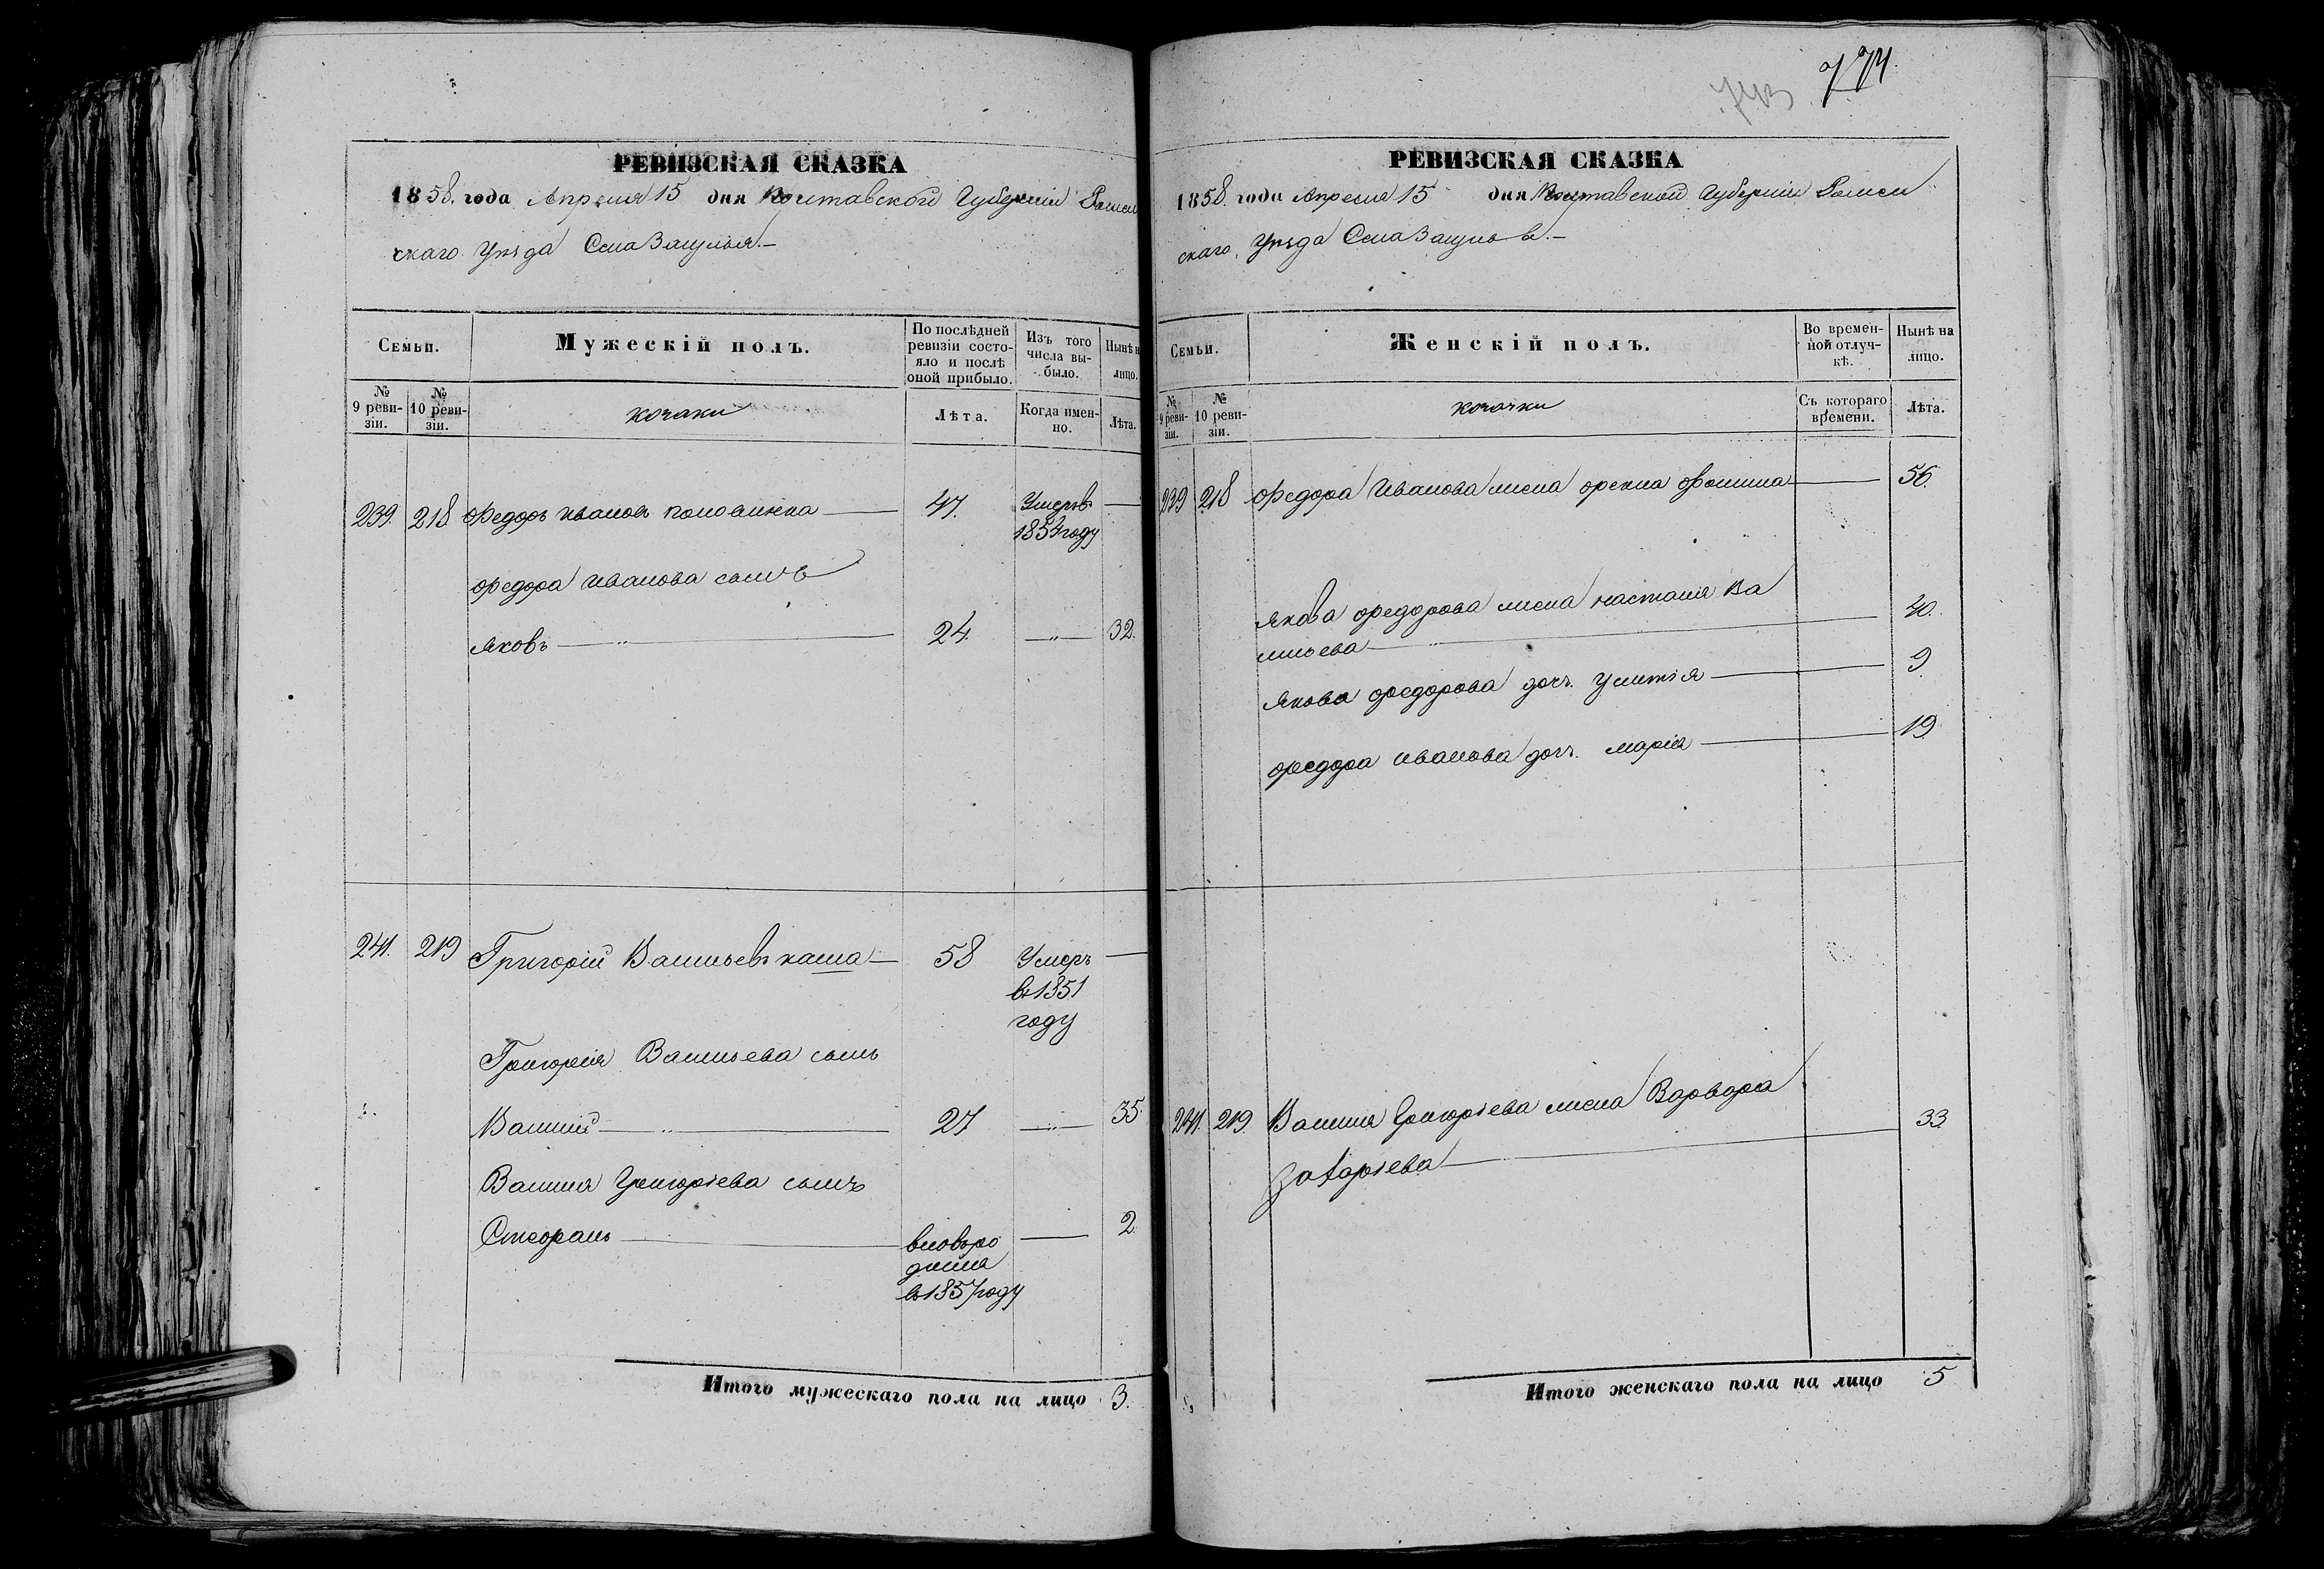 РЕВИЗСКАЯ СКАЗКА
1858. года Апреля 15 дня Полтавской Губернии Ромен
скаго Уѣзда Села Засулья.—
Семьи.
Мужескій полъ.
По послѣдней ревизіи состо-
яло и послѣ оной прибыло.
Изъ того числа вы-
было.
Нынѣ н
лицо.
№ 9 реви-
зіи.
№ 10 реви-
зіи.
козаки
Лѣта.
Когда имен-
но.
Лѣта.
239. 218 Федоръ Иванов Половинка — 47. Умерв —
1854 году
Федора Иванова сынъ
Яковъ — „ — 24. — „ — 32.
241. 219 Григорій Васильевъ каша — 58 Умеръ —
в 1851
году
Григорія Васильева сынъ
Василій — „ — 27 — „ — 35.
Василия Григорiева сынъ
Стефанъ — вновьро — 2.
дился
в 1857 году
Итого мужескаго пола на лицо 3.
743 774.
РЕВИЗСКАЯ СКАЗКА
1858. года Апреля 15 дня Полтавской Губернии Ромен
скаго, Уѣзда Села Засулья.—
Семьи.
Женскій полъ.
Во времен-
ной отлуч-
кѣ.
Нынѣ на
лицо.
№ 9 реви-
зіи.
№ 10 реви-
зіи.
козачки
Съ котораго
времени.
Лѣта.
239 218 Федора Иванова жена Фекла Фомина — 56.
Якова Федорова жена Настасия Ва
сильева — 40.
Якова Федорова доч. Улитiя — 9.
Федора Иванова доч. Марiя — 19.
241. 219. Василия Григорiева жена Варвара
Захарiева — 33
Итого женскаго пола на лицо 5